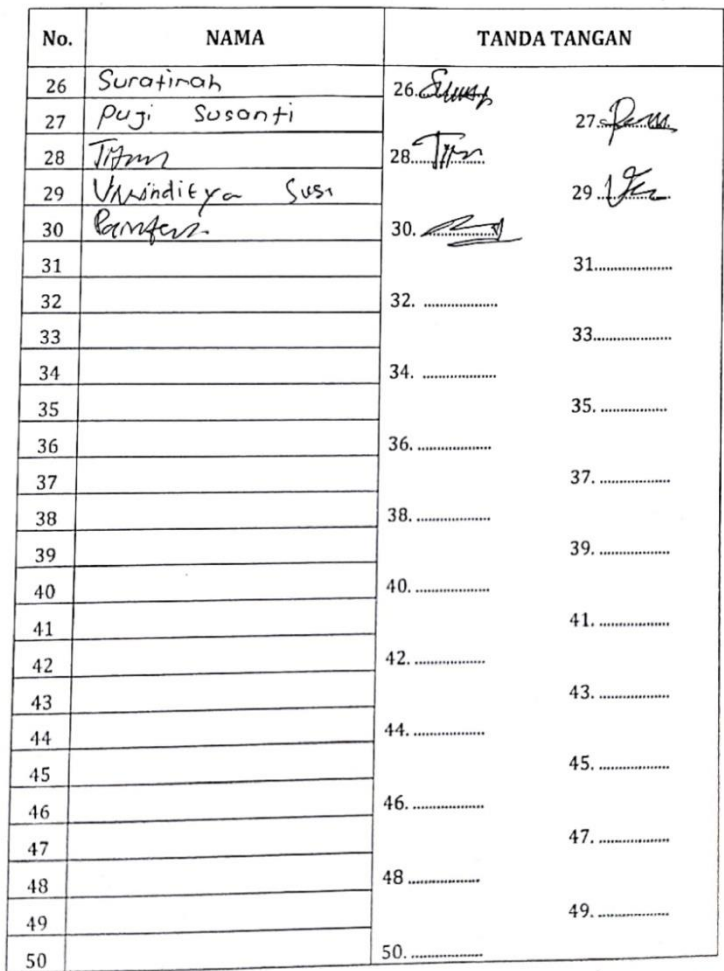 No. NAMA TANDA TANGAN
26 Suratinah 26.
27 Puji Susanti 27.
28 28.
29 Susi 29
30 30.
31 31
32 32.
33 33
34 34.
35 35.
36 36.
37 37.
38 38.
39 39.
40 40.
41 41.
42 42.
43 43.
44 44.
45 45.
46 46.
47 47.
48 48
49 49.
50 50.